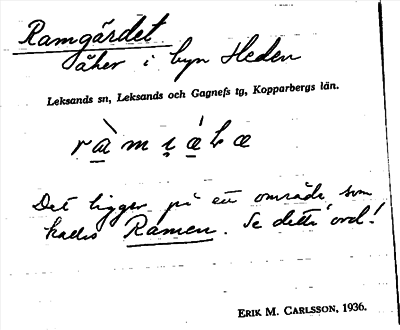 Ramgärdet
åker i byn Heden
Leksands sn, Leksands och Gagnefs tg, Kopparbergs län.
Det ligger på ett område som
kallas Ramen. Se detta ord!
ERIK M. CARLSSON, 1936.